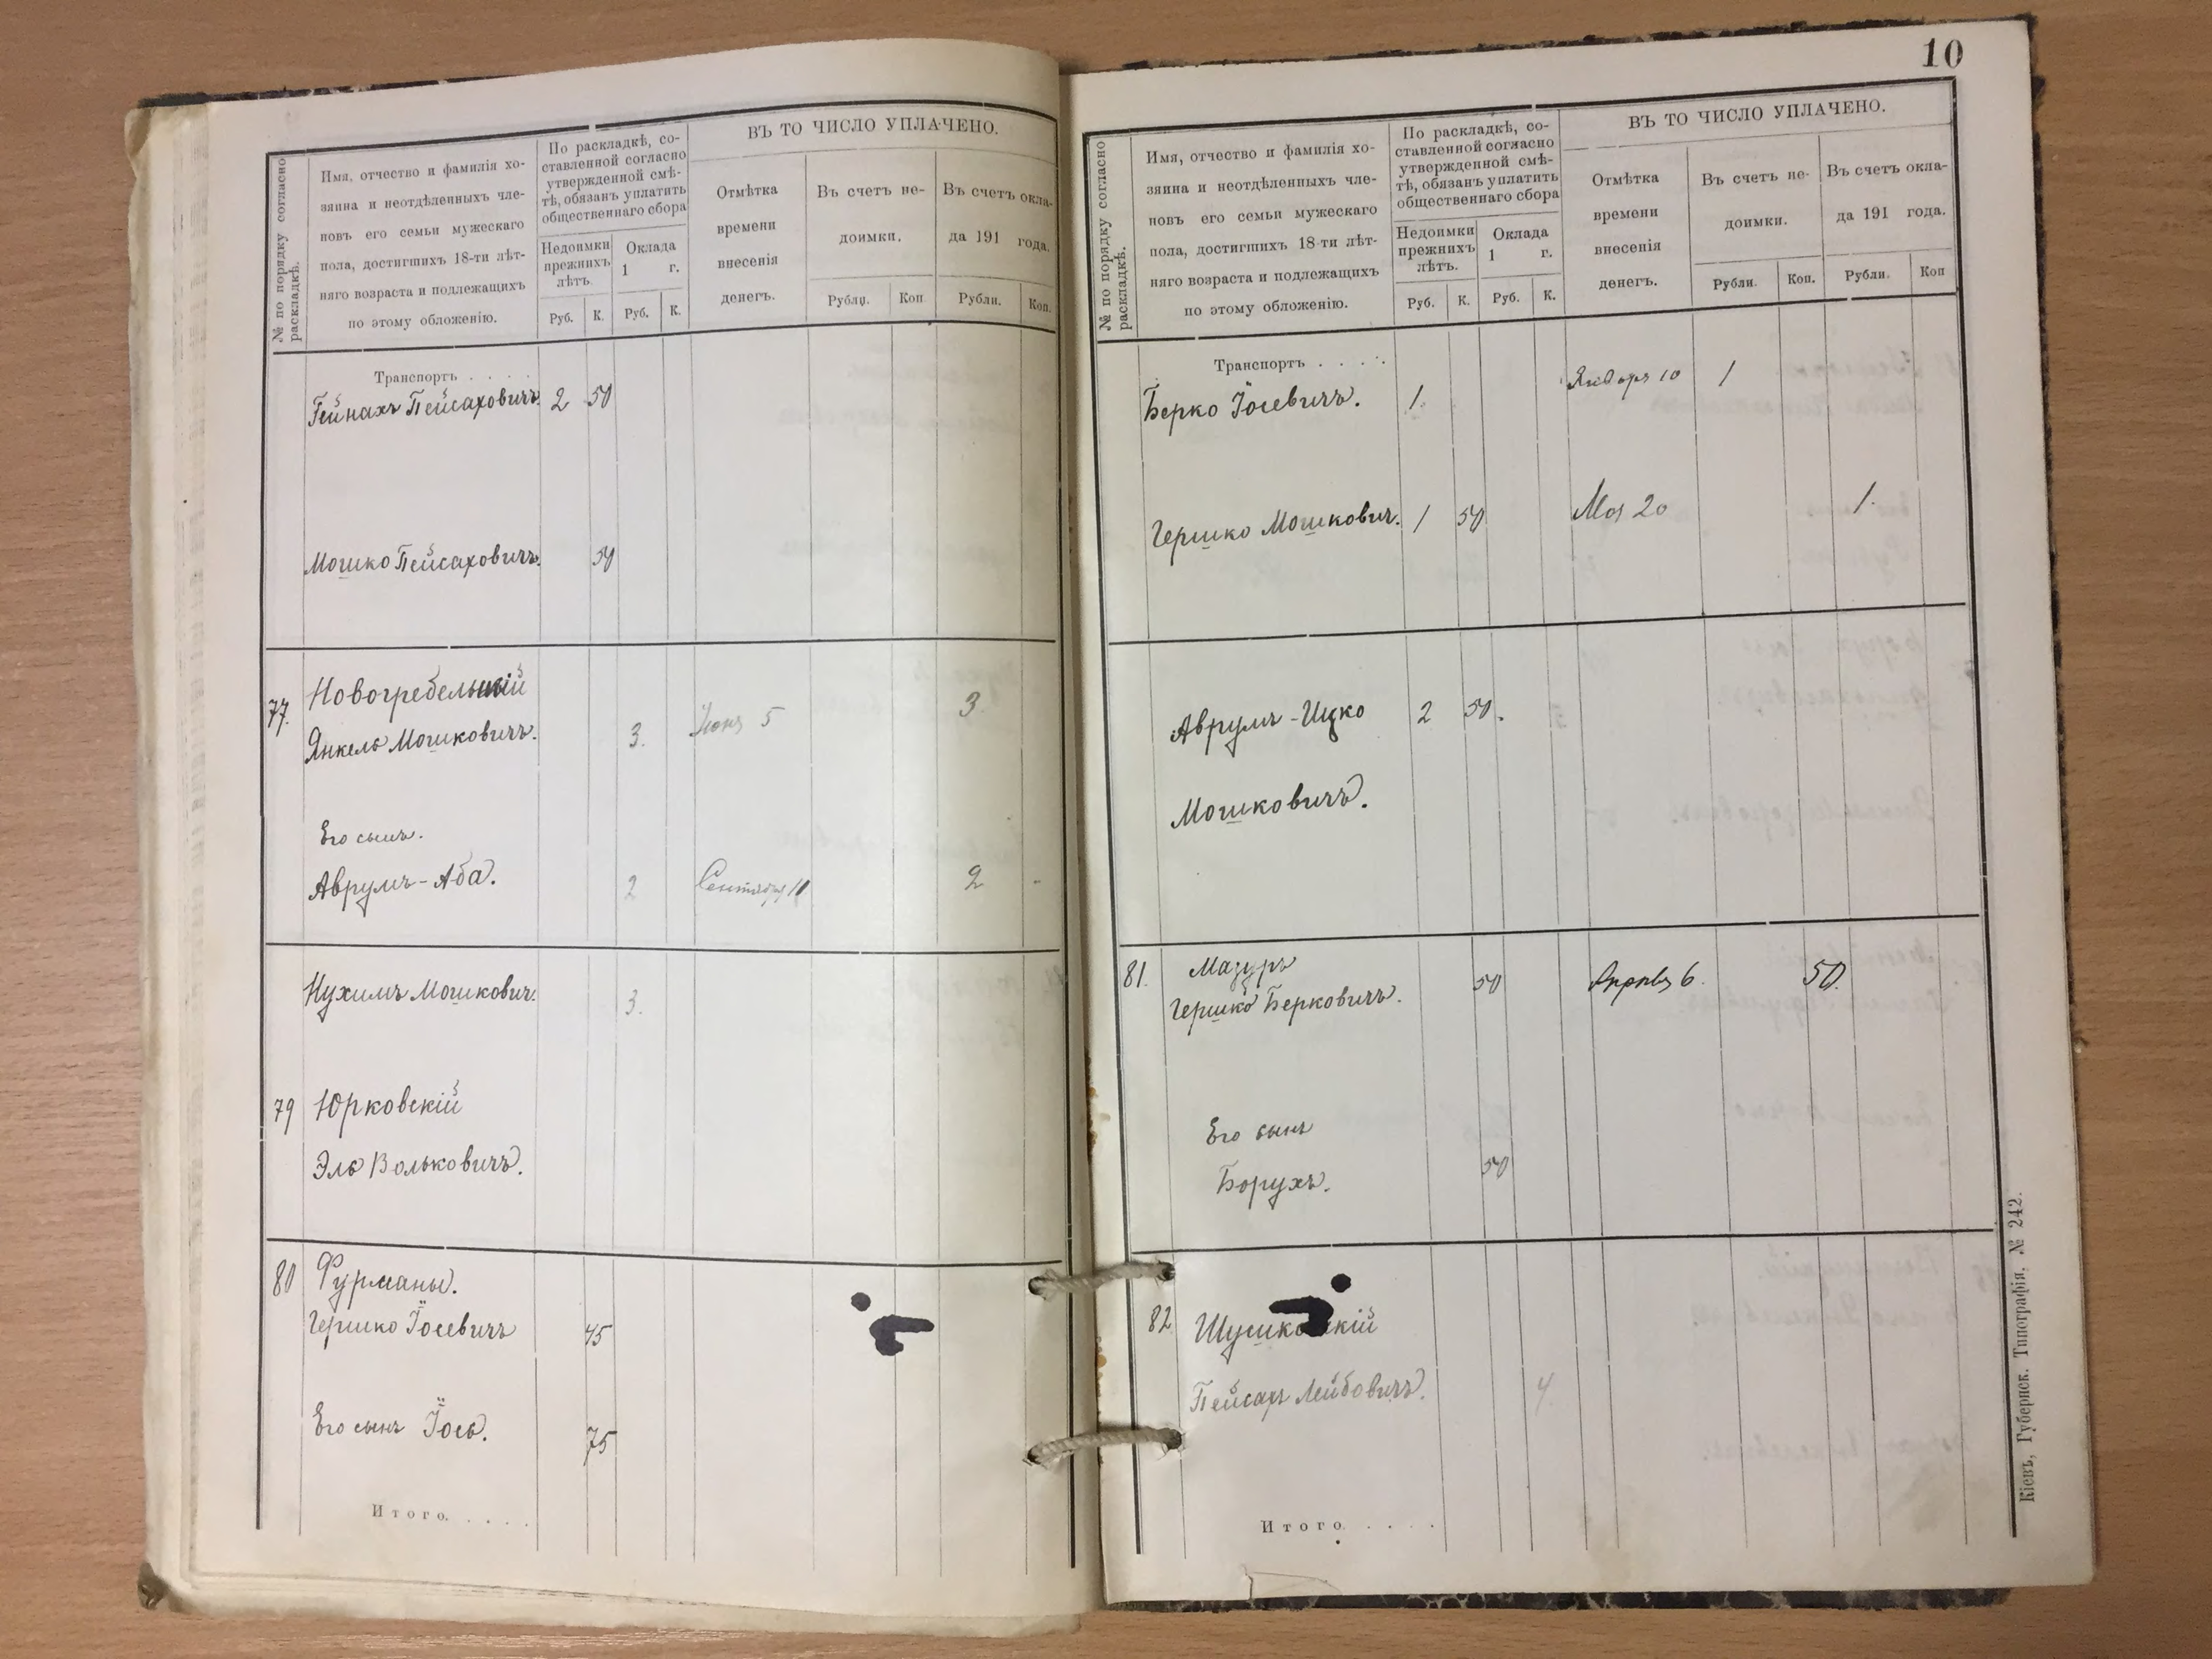 № по порядку согласно
раскладкѣ.
Имя, отчество и фамилія хо-
зяина и неотдѣленныхъ чле-
новъ его семьи мужескаго
пола, достигшихъ 18-ти лѣт-
няго возраста и подлежащихъ
по этому обложенію.
По раскладкѣ, со-
ставленной согласно
утвержденной смѣ-
тѣ, обязанъ уплатить
общественнаго сбора
Недоимки
прежнихъ
лѣтъ.
Оклада
1 г.
Руб. К. Руб. К.
ВЪ ТО ЧИСЛО УПЛАЧЕНО.
Отмѣтка
времени
внесенія
денегъ.
Въ счетъ не-
доимки.
Въ счетъ окла-
да 191 года.
Рубли. Коп Рубли. Коп.
Транспортъ . . . .
Гейнахъ Пейсаховичъ. 2 50
Мошко Пейсаховичъ. 50
77. Новогребельскій
Янкель Мошковичъ. 3. Іюня 5 3.
Его сынъ.
Аврумъ-Аба. 2 Сентября 11 2 -
Нухимъ Мошковичъ. 3.
79 Юрковскій
Эль Вольковичъ.
80 Фурманы.
Гершко Іосевичъ 45
Его сынъ Іось. 75
Итого. . . . .
10
№ по порядку согласно
раскладкѣ.
Имя, отчество и фамилія хо-
зяина и неотдѣленныхъ чле-
новъ его семьи мужескаго
пола, достигшихъ 18-ти лѣт-
няго возраста и подлежащихъ
по этому обложенію.
По раскладкѣ, со-
ставленной согласно
утвержденной смѣ-
тѣ, обязанъ уплатить
общественнаго сбора
Недоимки
прежнихъ
лѣтъ.
Оклада
1 г.
Руб. К. Руб. К.
ВЪ ТО ЧИСЛО УПЛАЧЕНО.
Отмѣтка
времени
внесенія
денегъ.
Въ счетъ не-
доимки.
Въ счетъ окла-
да 191 года.
Рубли. Коп. Рубли. Коп
Транспортъ . . . .
Берко Іосевичъ. 1. Января 10 1
Гершко Мошковичъ. 1 50 Мая 20 1.
Аврумъ-Ицко 2 50.
Мошковичъ.
81. Мазуръ
Гершко Берковичъ. 50 Апрѣля 6. 50.
Его сынъ
Борухъ. 50
82 Шушковскій
Пейсахъ Лейбовичъ. 4.
Итого . . . .
Кіевъ, Губернск. Типографія. № 242.